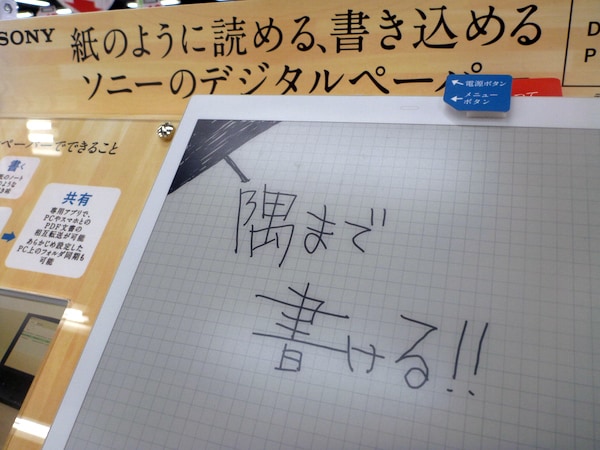 SONY
紙のように読める、書き込める
ソニーのデジタルペーパー
電源ボタン
メニュー
ボタン
ペーパーでできること
書く
共有
専用アプリで、
PCやスマホとの
PDF文書の
相互転送が可能
あらかじめ設定した
PC上のフォルダ同期も
可能
隅まで
書ける!!